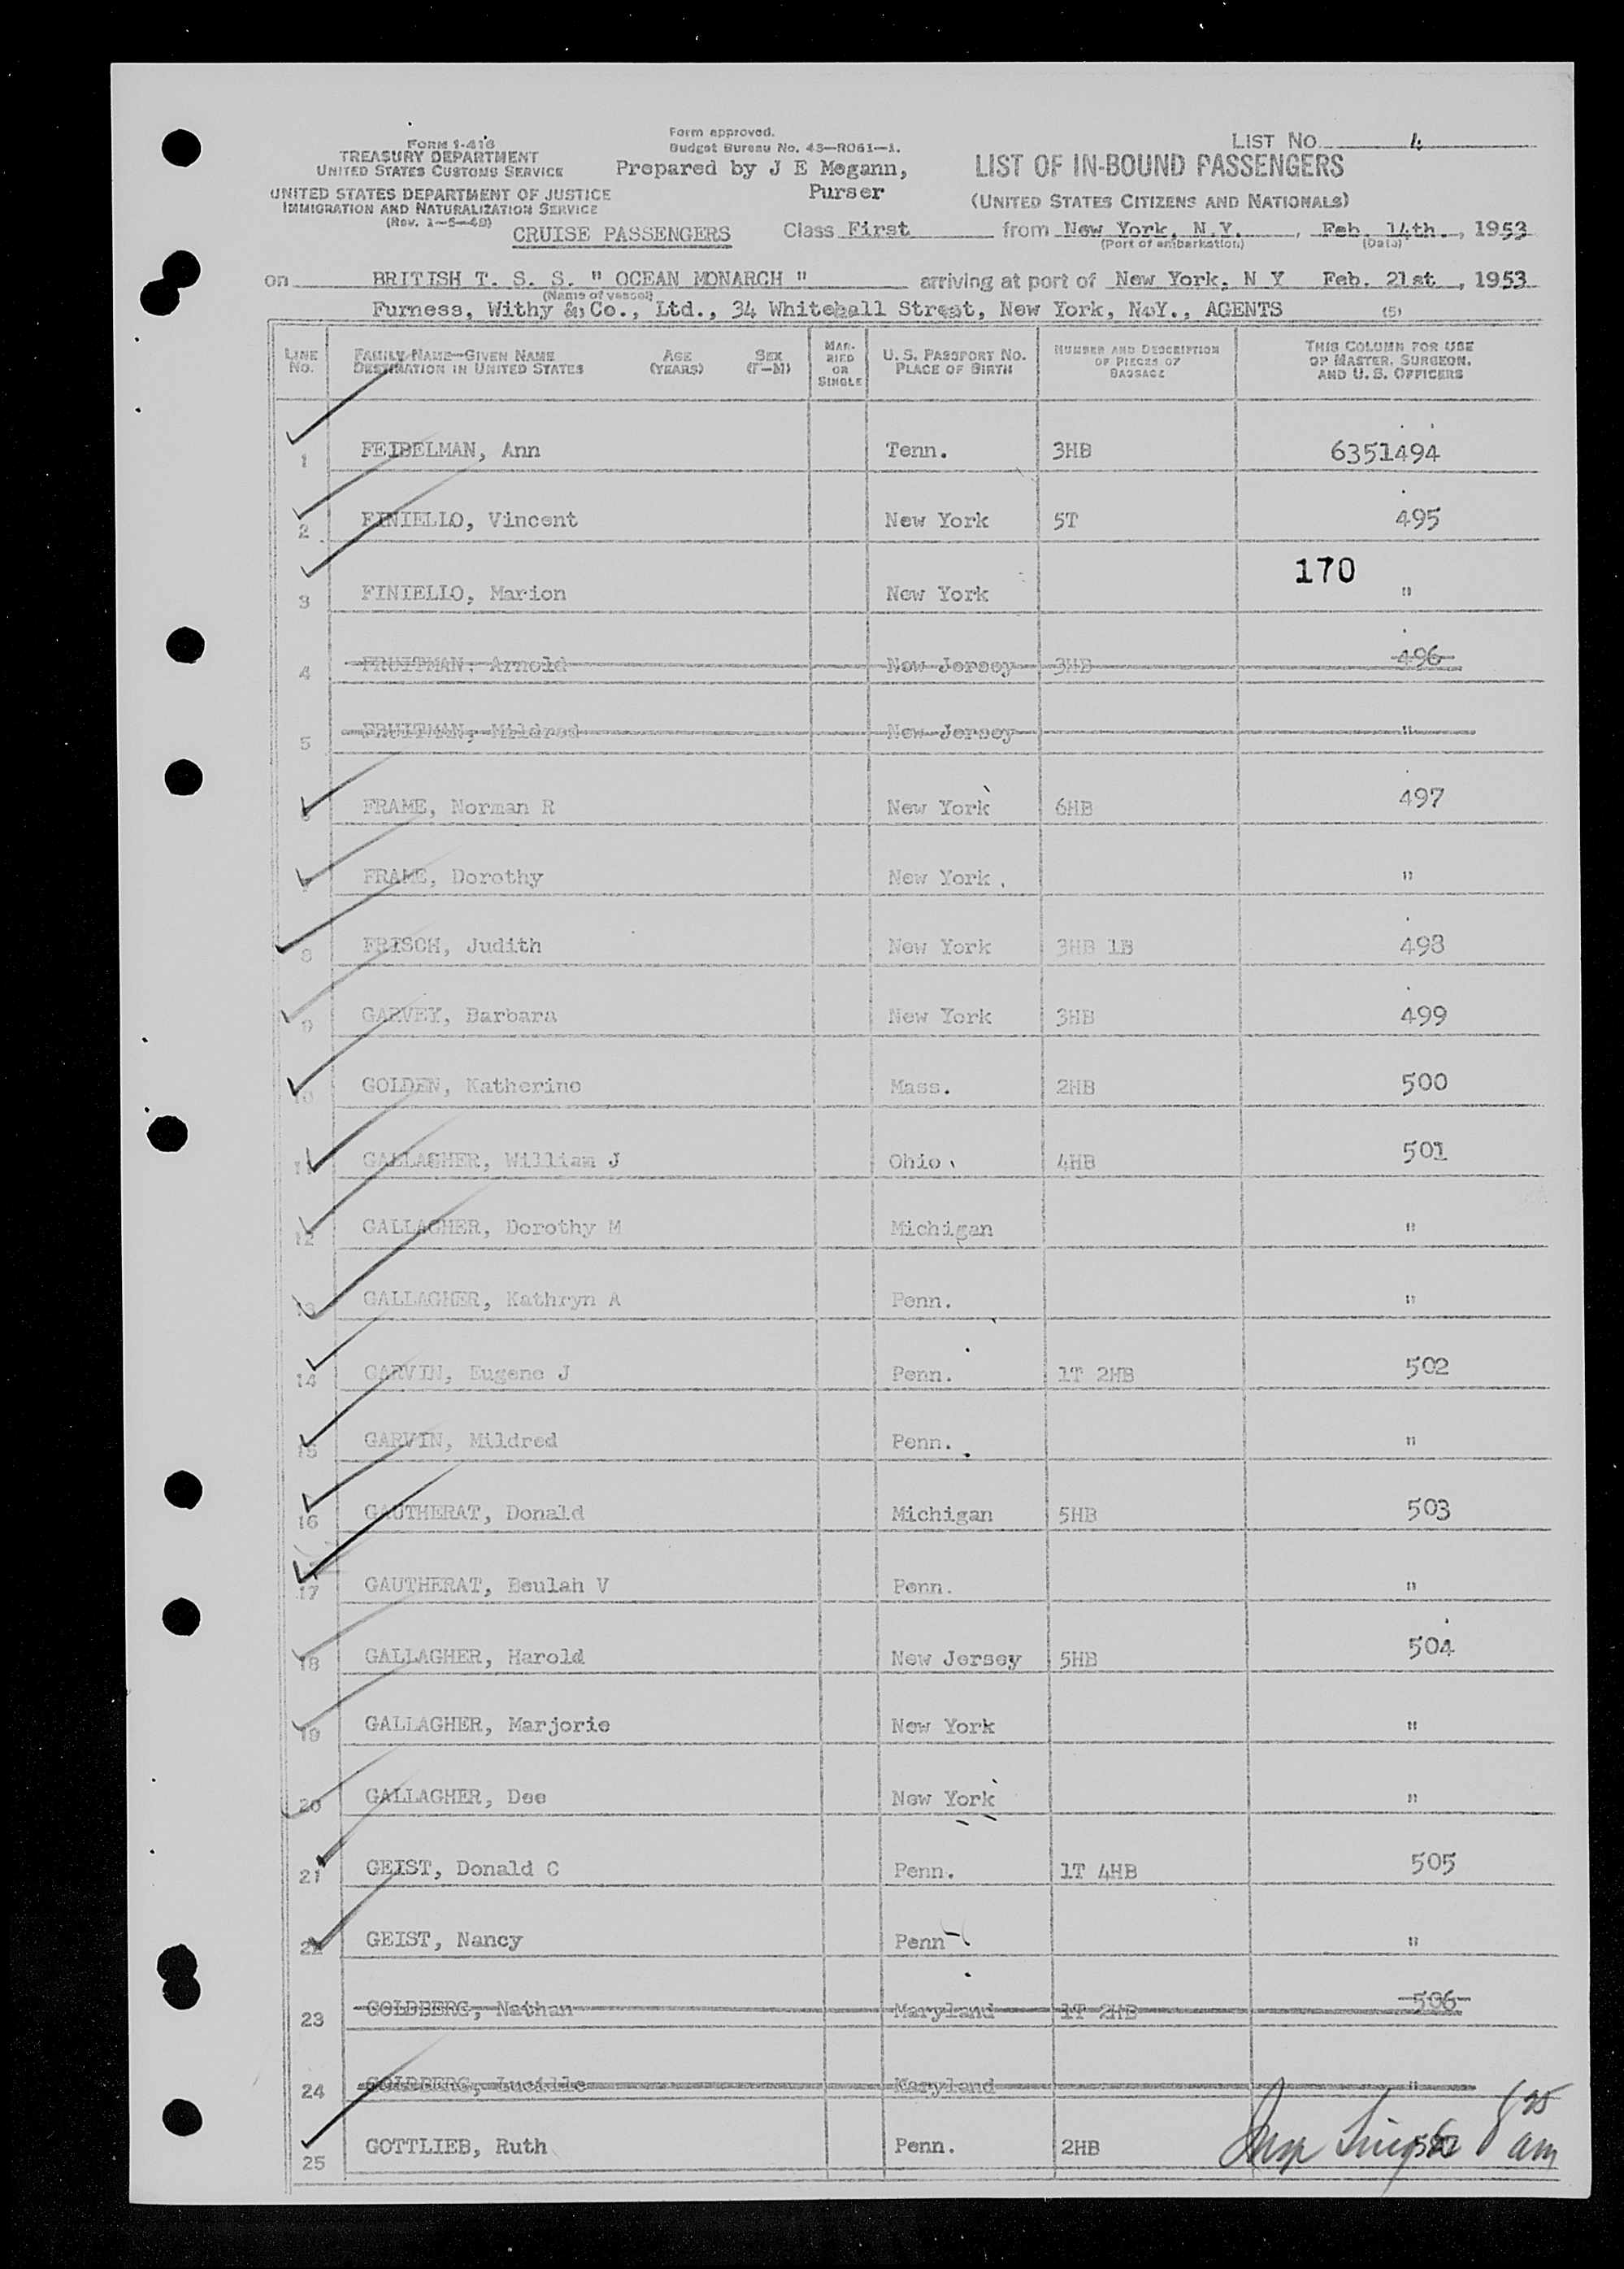 FORM I-416
TREASURY DEPARTMENT
UNITED STATES CUSTOMS SERVICE
UNITED STATES DEPARTMENT OF JUSTICE
IMMIGRATION AND NATURALIZATION SERVICE
(Rev. 1-5-49)
Form approved.
Budget Bureau No. 43-R061-1.
Prepared by J E Megann,
Purser
LIST NO. 4
LIST OF IN-BOUND PASSENGERS
(UNITED STATES CITIZENS AND NATIONALS)
CRUISE PASSENGERS Class First from New York, N.Y. , Feb. 14th. , 1953
(Port of embarkation) (Date)
on BRITISH T. S. S. " OCEAN MONARCH " arriving at port of New York, N Y Feb. 21st , 1953
(Name of vessel)
Furness, Withy & Co., Ltd., 34 Whitehall Street, New York, N.Y., AGENTS (5)
LINE NO. FAMILY NAME—GIVEN NAME DESTINATION IN UNITED STATES AGE (YEARS) SEX (F-M) MARRIED OR SINGLE U. S. PASSPORT NO. PLACE OF BIRTH NUMBER AND DESCRIPTION OF PIECES OF BAGGAGE THIS COLUMN FOR USE OF MASTER, SURGEON, AND U. S. OFFICERS
1 FEIBELMAN, Ann Tenn. 3HB 6351494
2 FINIELLO, Vincent New York 5T 495
170
3 FINIELLO, Marion New York "
4 FRUITMAN, Arnold New Jersey 3HB 496
5 FRUITMAN, Mildred New Jersey "
6 FRAME, Norman R New York 6HB 497
FRAME, Dorothy New York "
8 FRISCH, Judith New York 3HB 1B 498
9 GARVEY, Barbara New York 3HB 499
10 GOLDEN, Katherine Mass. 2HB 500
11 GALLAGHER, William J Ohio 4HB 501
12 GALLAGHER, Dorothy M Michigan "
13 GALLAGHER, Kathryn A Penn. "
14 GARVIN, Eugene J Penn. 1T 2HB 502
15 GARVIN, Mildred Penn. "
16 GAUTHERAT, Donald Michigan 5HB 503
17 GAUTHERAT, Beulah V Penn. "
18 GALLAGHER, Harold New Jersey 5HB 504
19 GALLAGHER, Marjorie New York "
20 GALLAGHER, Dee New York "
21 GEIST, Donald C Penn. 1T 4HB 505
22 GEIST, Nancy Penn "
23 GOLDBERG, Nathan Maryland 1T 2HB 506
24 GOLDBERG, Lucille Maryland "
25 GOTTLIEB, Ruth Penn. 2HB am